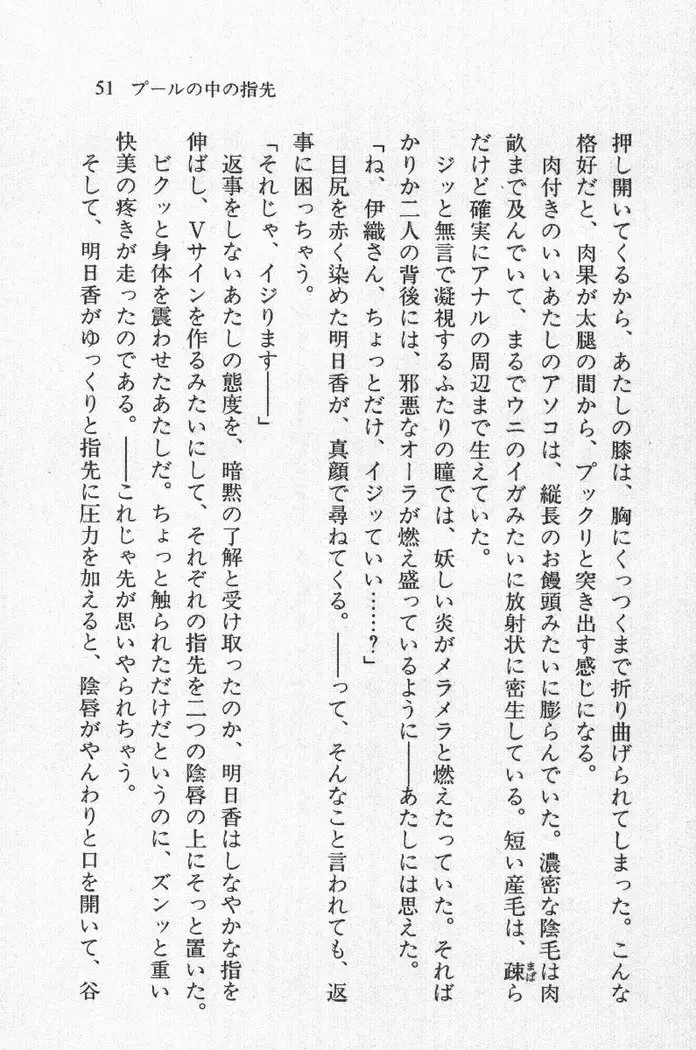 51 プールの中の指先
押し開いてくるから、あたしの膝は、胸にくっつくまで折り曲げられてしまった。こんな
格好だと、肉果が太腿の間から、プックリと突き出す感じになる。
肉付きのいいあたしのアソコは、縦長のお饅頭みたいに膨らんでいた。濃密な陰毛は肉
畝まで及んでいて、まるでウニのイガみたいに放射状に密生している。短い産毛は、疎(まば)ら
だけど確実にアナルの周辺まで生えていた。
ジッと無言で凝視するふたりの瞳では、妖しい炎がメラメラと燃えたっていた。それば
かりか二人の背後には、邪悪なオーラが燃え盛っているように――あたしには思えた。
「ね、伊織さん、ちょっとだけ、イジッていい……？」
目尻を赤く染めた明日香が、真顔で尋ねてくる。――って、そんなこと言われても、返
事に困っちゃう。
「それじゃ、イジります――」
返事をしないあたしの態度を、暗黙の了解と受け取ったのか、明日香はしなやかな指を
伸ばし、Vサインを作るみたいにして、それぞれの指先を二つの陰唇の上にそっと置いた。
ビクッと身体を震わせたあたしだ。ちょっと触られただけだというのに、ズンッと重い
快美の疼きが走ったのである。――これじゃ先が思いやられちゃう。
そして、明日香がゆっくりと指先に圧力を加えると、陰唇がやんわりと口を開いて、谷